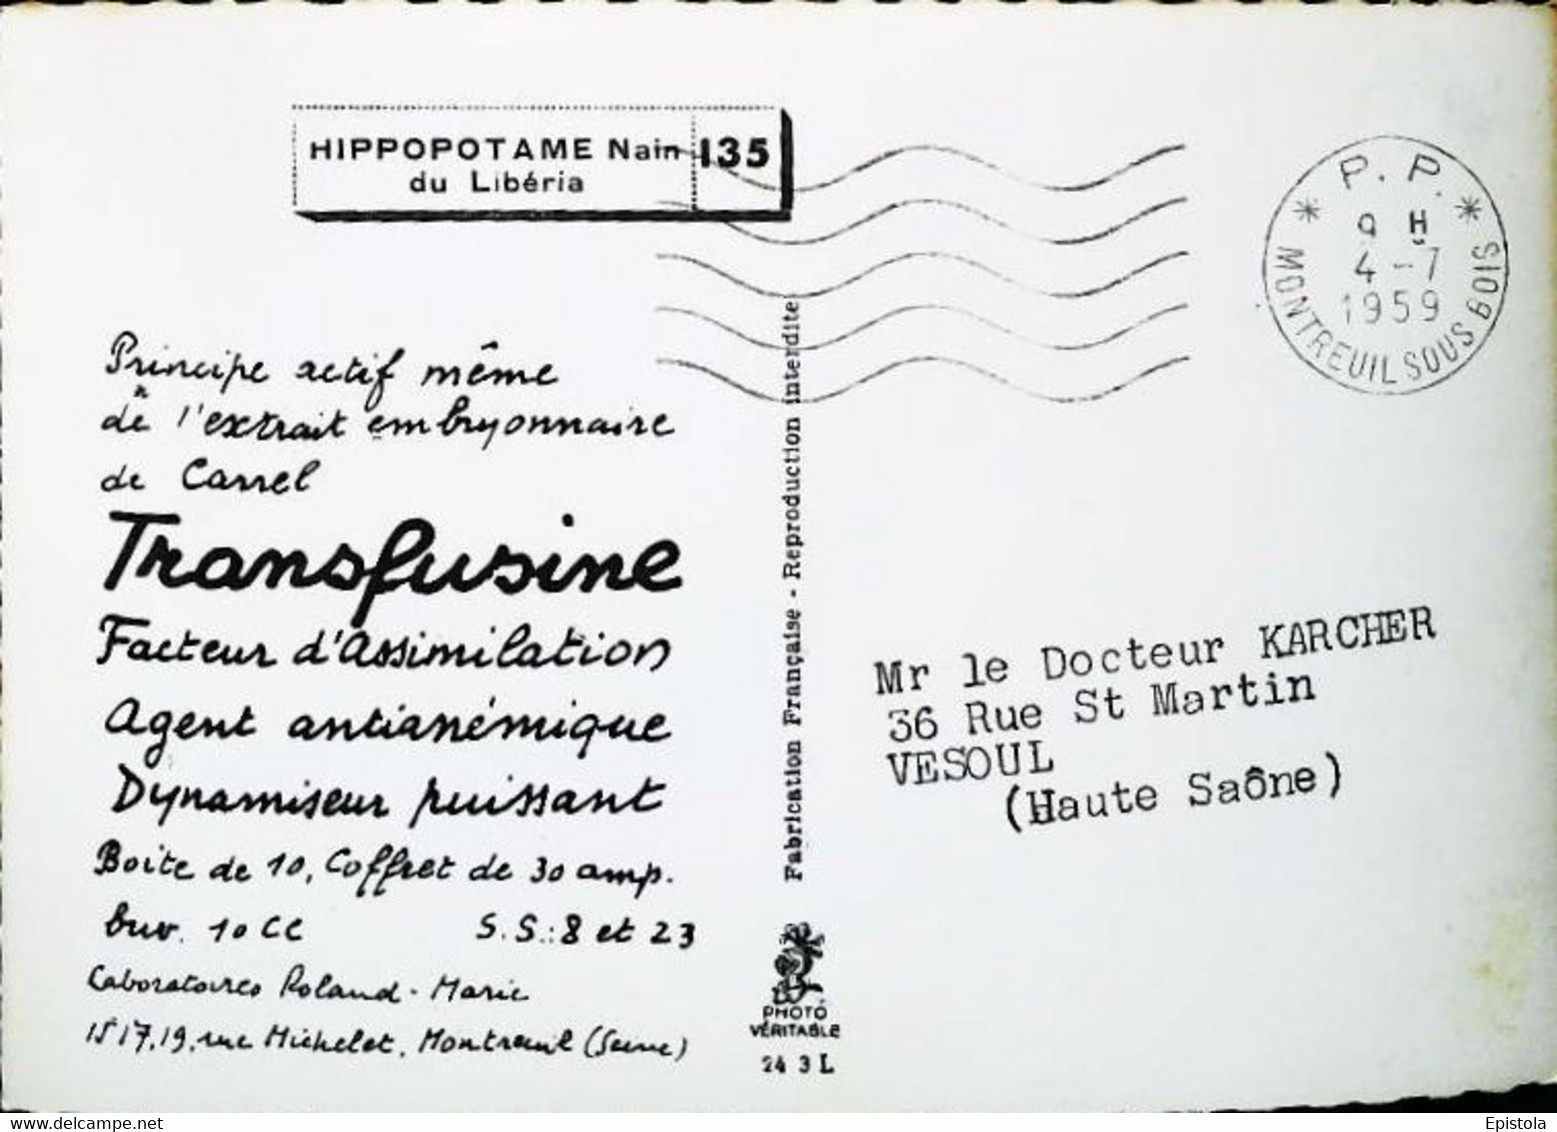 HIPPOPOTAME Nain 135
du Libéria
P. P.
9 H
4 -7
1959
MONTREUIL SOUS BOIS
Principe actif même
de l'extrait embryonnaire
de Carrel
Transfusine
Facteur d'Assimilation
Agent antianémique
Dynamiseur puissant
Boîte de 10, Coffret de 30 amp.
buv. 10 CC S.S.: 8 et 23
Laboratoires Roland-Marie
15 17, 19, rue Michelet, Montreuil (Seine)
Fabrication Française - Reproduction interdite
PHOTO
VÉRITABLE
24 3 L
Mr le Docteur KARCHER
36 Rue St Martin
VESOUL
(Haute Saône)
delcampe.net
Epistola